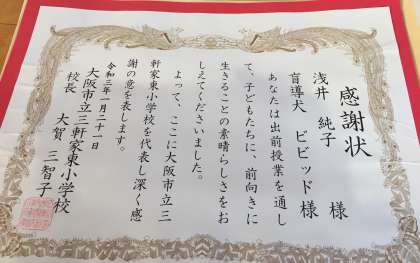 感謝状
浅井 純子 様
盲導犬 ビビッド 様
あなたは出前授業を通し
て、子どもたちに、前向きに
生きることの素晴らしさをお
しえてくださいました。
よって、ここに大阪市立三
軒家東小学校を代表し深く感
謝の意を表します。
令和三年一月二十一日
大阪市立三軒家東小学校
校長 大賀 三智子